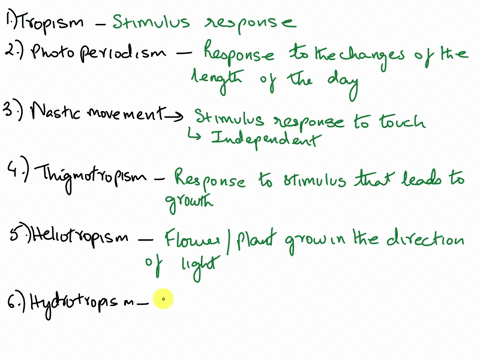 1.) Tropism - Stimulus response
2.) Photo periodism - Response to the changes of the
length of the day
3.) Nastic movement → Stimulus response to touch
↳ Independent
4.) Thigmotropism - Response to stimulus that leads to
growth
5.) Heliotropism - Flower / plant grow in the direction
of light
6.) Hydrotropism -